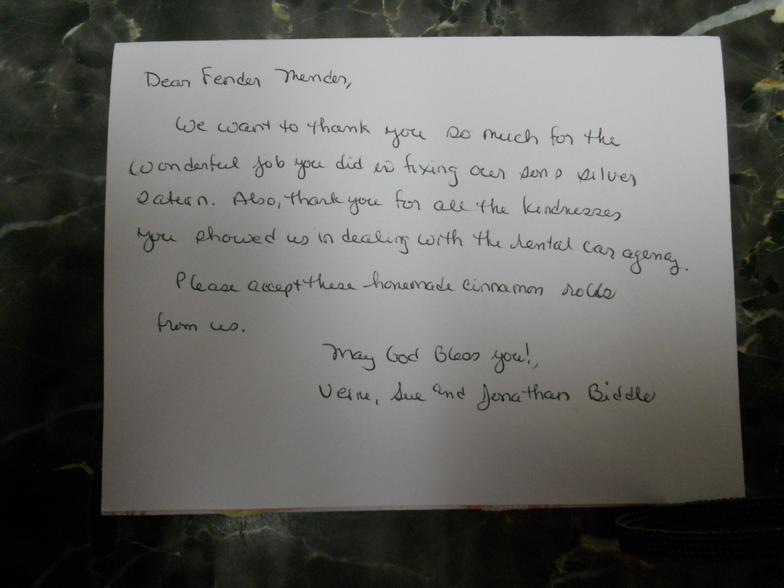 Dear Fender Mender,
We want to thank you so much for the
wonderful job you did in fixing our sons silver
Saturn. Also, thank you for all the kindnesses
you showed us in dealing with the rental car agency.
Please accept these homemade cinnamon rolls
from us.
May God Bless you!,
Verne, Sue and Jonathan Biddle